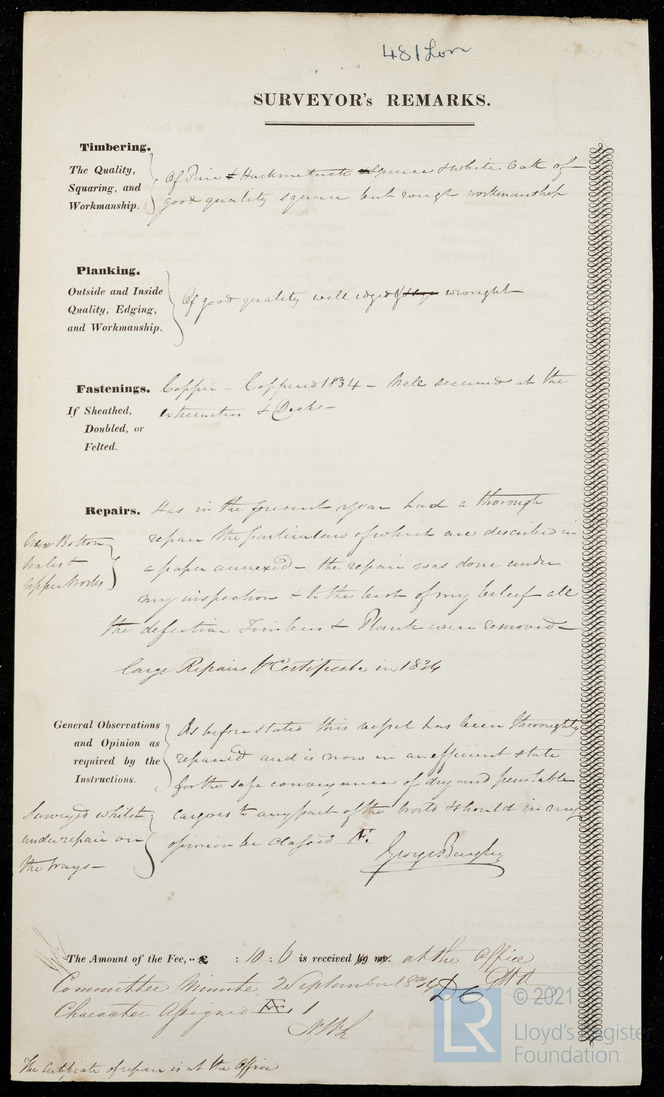 481 Lon
SURVEYOR's REMARKS.
Timbering.
The Quality,
Squaring, and
Workmanship.
Of Pine & Hackmetack Spruce & White Oak of
good quality square but rough workmanship
Planking.
Outside and Inside
Quality, Edging,
and Workmanship.
Of good quality well edged & wrought
Fastenings.
If Sheathed,
Doubled, or
Felted.
Copper - Coppered 1834 - Well secured at the
extremities & Decks -
Repairs.
Has in the present year had a thorough
repair the particulars of which are described in
a paper annexed - the repair was done under
my inspection & to the best of my belief all
the defective Timbers & Plank were removed -
New Bottom
Wales &
upper works
Large Repairs Certificate in 1834
General Observations
and Opinion as
required by the
Instructions.
As before stated this vessel has been thoroughly
repaired and is now in an efficient state
for the safe conveyance of dry and perishable
cargoes to any part of the World & should in my
opinion be classed
Surveyed whilst
under repair on
the Ways -
George
The Amount of the Fee, .. £ : 10 : 6 is received by me. at the Office
Committee Minute 2 September 1834
Character Assigned 1
The Certificate of repair is at the Office
LR © 2021
Lloyd's Register
Foundation